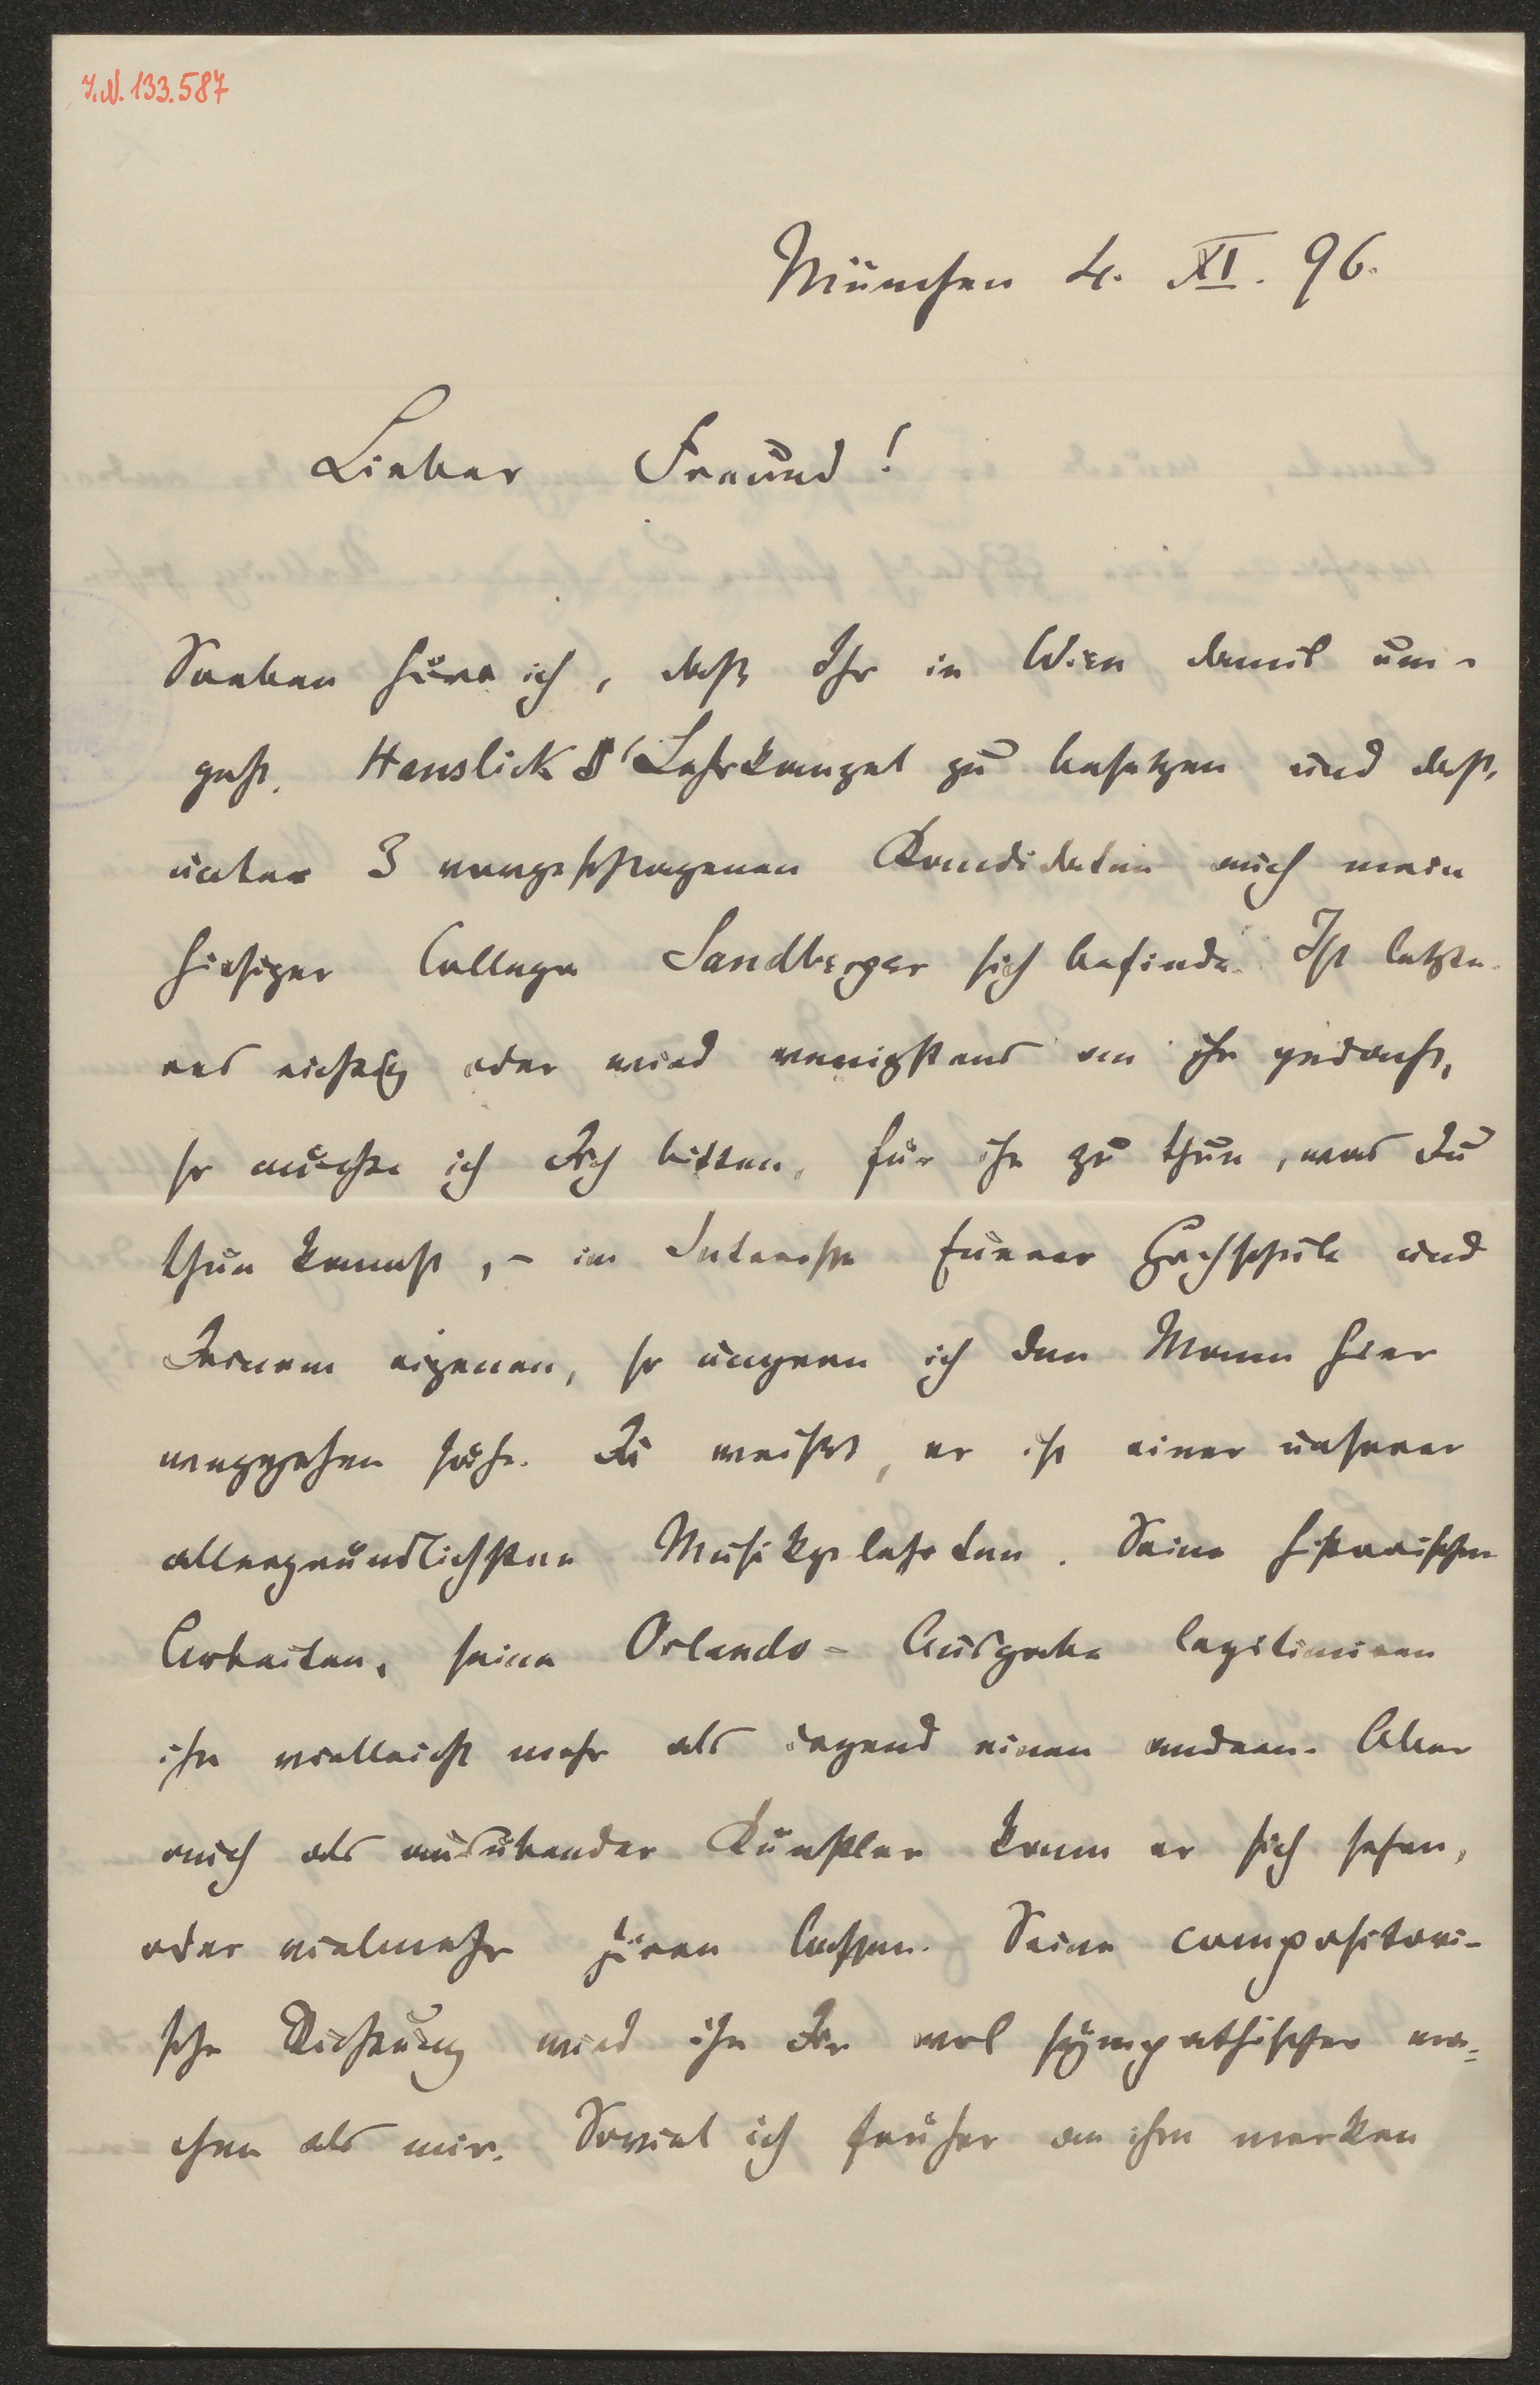 I.N. 133.587
München 4. XI. 96.
Lieber Freund!
Soeben höre ich, daß Ihr in Wien damit um-
geht, Hanslick's Lehrkanzel zu besetzen und daß,
unter 3 vorgeschlagenen Kandidaten auch mein
hiesiger College Sandberger sich befinde. Ist letzte-
res richtig oder wird wenigstens an ihn gedacht,
so möchte ich Dich bitten, für ihn zu thun, was Du
thun kannst, – im Interesse Eurer Hochschule und
Deinem eigenen, so ungern ich den Mann hier
weggehen sähe. Du weißt, er ist einer unserer
allergründlichsten Musikgelehrten. Seine historischen
Arbeiten, seine Orlando-Ausgabe legitimiren
ihn vielleicht mehr als irgend einen andern. Aber
auch als ausübender Künstler kann er sich sehen,
oder vielmehr hören lassen. Seine compositori-
sche Richtung wird ihn Dir wol sympathischer ma-
chen als mir. Soviel ich früher an ihm merken